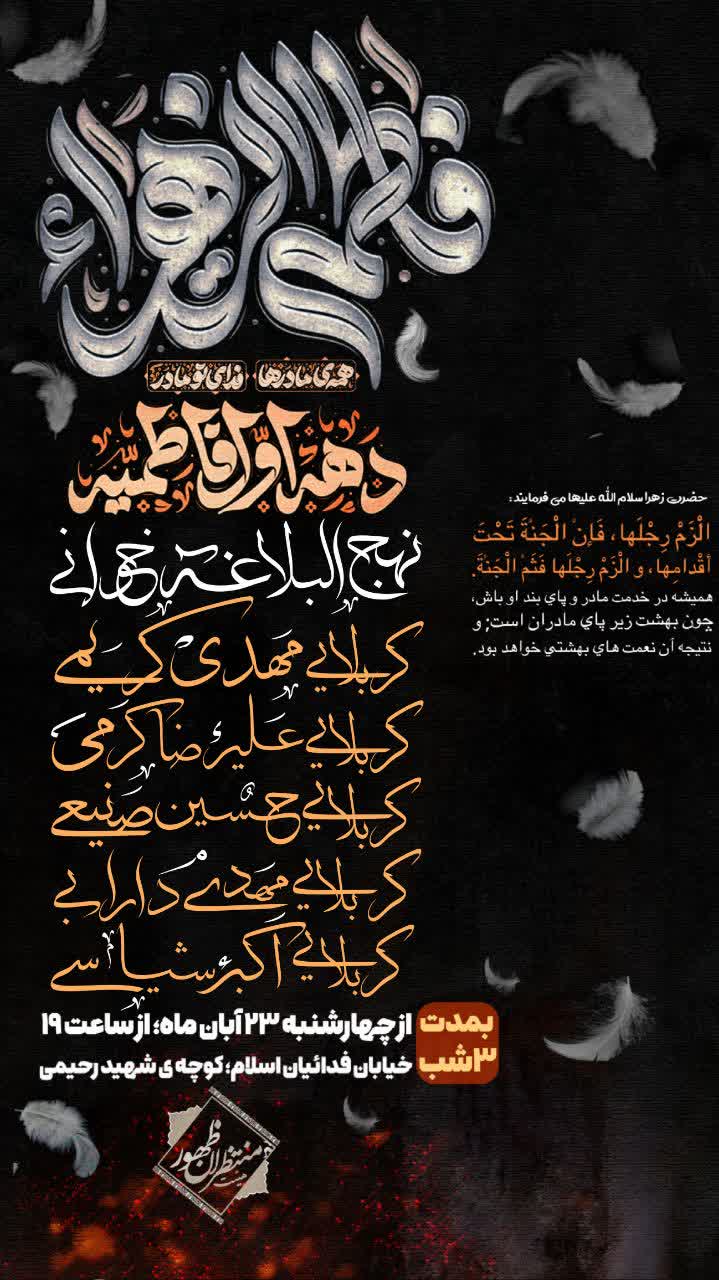 فاطمة الزهراء
همه‌ی مادرها فدای تو مادر
دهه اول فاطمیه
نهج البلاغه خوانی
کربلایی مهدی کریمی
کربلایی علیرضا کرمی
کربلایی حسین صنیعی
کربلایی مهدی دارابی
کربلایی اکبر
بمدت ۳ شب
از چهارشنبه ۲۳ آبان ماه؛ از ساعت ۱۹
خیابان فدائیان اسلام؛ کوچه ی شهید رحیمی
هیئت منتظران ظهور
حضرت زهرا سلام الله علیها می فرمایند:
الْزَمْ رِجْلَها، فَإنَّ الْجَنَّةَ تَحْتَ
أقْدامِها، و الْزَمْ رِجْلَها فَثَمَّ الْجَنَّةَ.
همیشه در خدمت مادر و پاي بند او باش،
چون بهشت زیر پاي مادران است؛ و
نتیجه آن نعمت هاي بهشتي خواهد بود.